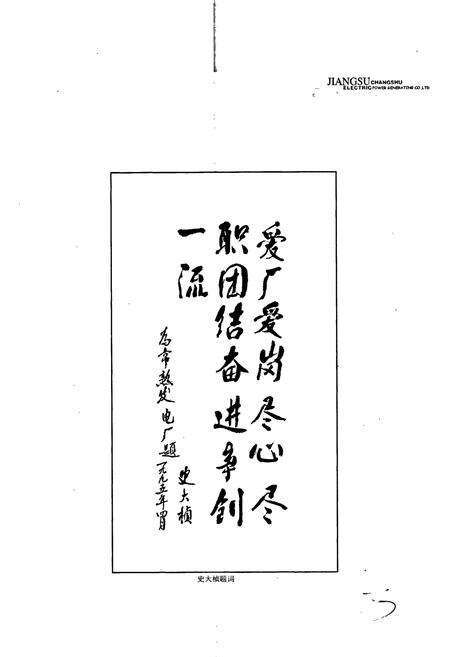 JIANGSU CHANGSHU
ELECTRIC POWER GENERATING CO.,LTD
爱厂爱岗尽心尽
职团结奋进争创
一流
为常熟发电厂题
史大桢
一九九五年四月
史大桢题词